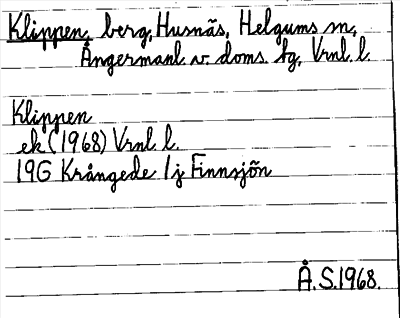 Klippen, berg, Husnäs, Helgums sn,
Ångermanl. v. doms. tg, Vrnl. l.
Klippen
ek (1968) Vrnl. l.
19G Krångede 1j Finnsjön
Å.S.1968.